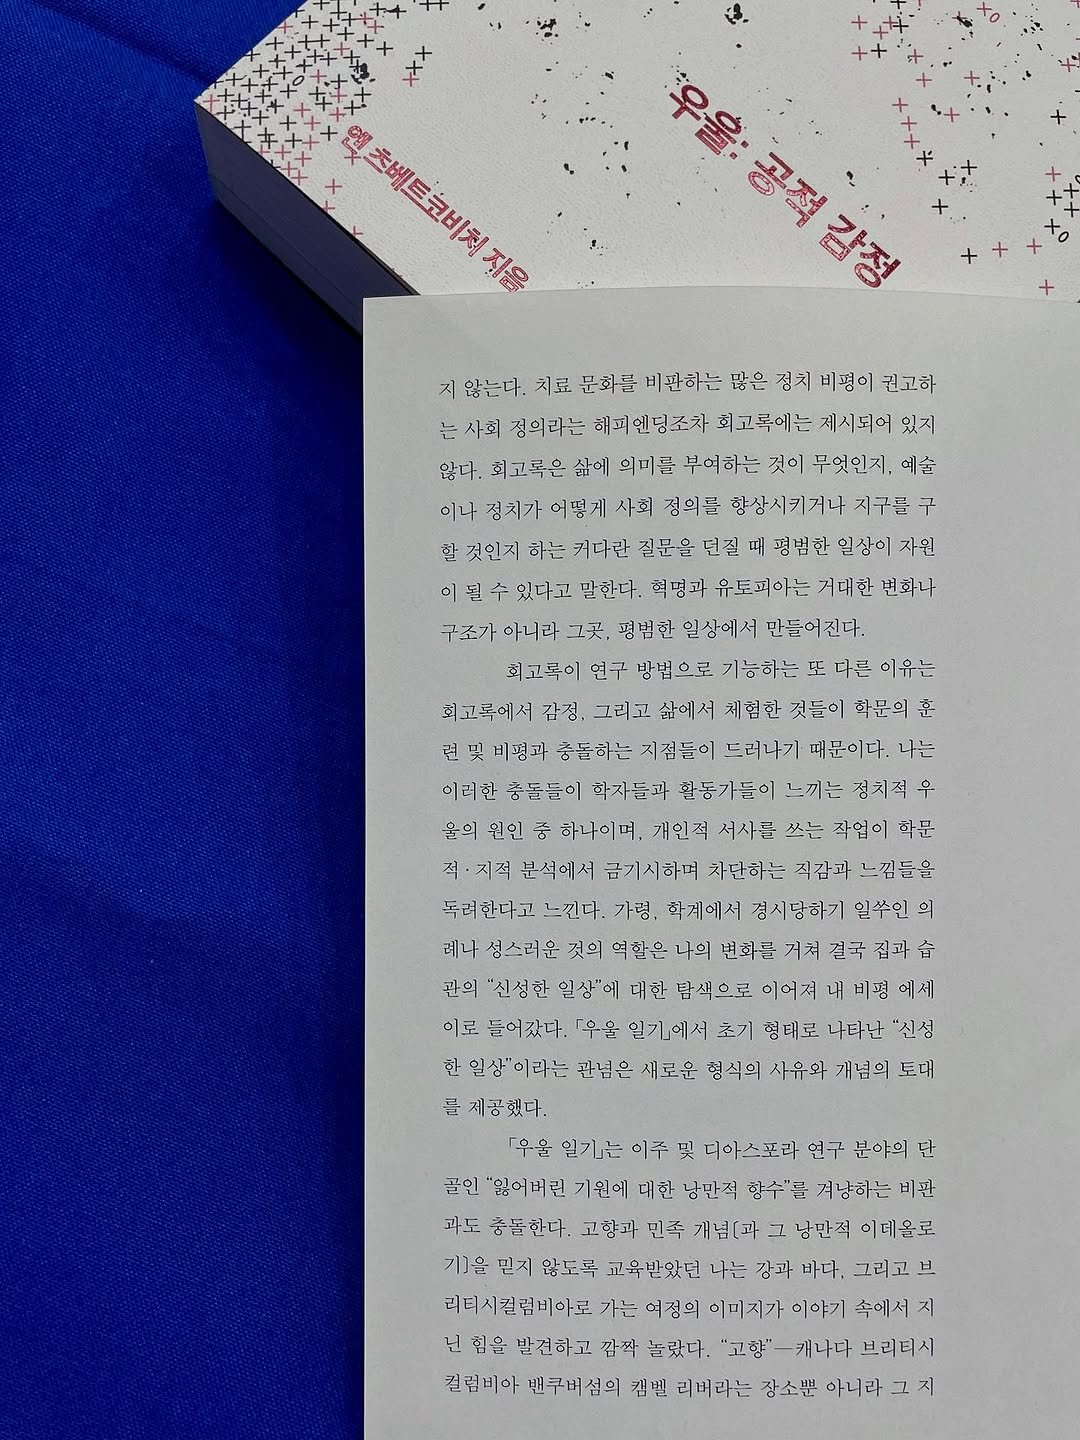 우울: 공적 감정
앤 츠베트코비치 지음
지 않는다. 치료 문화를 비판하는 많은 정치 비평이 권고하
는 사회 정의라는 해피엔딩조차 회고록에는 제시되어 있지
않다. 회고록은 삶에 의미를 부여하는 것이 무엇인지, 예술
이나 정치가 어떻게 사회 정의를 향상시키거나 지구를 구
할 것인지 하는 커다란 질문을 던질 때 평범한 일상이 자원
이 될 수 있다고 말한다. 혁명과 유토피아는 거대한 변화나
구조가 아니라 그곳, 평범한 일상에서 만들어진다.
회고록이 연구 방법으로 기능하는 또 다른 이유는
회고록에서 감정, 그리고 삶에서 체험한 것들이 학문의 훈
련 및 비평과 충돌하는 지점들이 드러나기 때문이다. 나는
이러한 충돌들이 학자들과 활동가들이 느끼는 정치적 우
울의 원인 중 하나이며, 개인적 서사를 쓰는 작업이 학문
적·지적 분석에서 금기시하며 차단하는 직감과 느낌들을
독려한다고 느낀다. 가령, 학계에서 경시당하기 일쑤인 의
례나 성스러운 것의 역할은 나의 변화를 거쳐 결국 집과 습
관의 “신성한 일상”에 대한 탐색으로 이어져 내 비평 에세
이로 들어갔다. 「우울 일기」에서 초기 형태로 나타난 “신성
한 일상”이라는 관념은 새로운 형식의 사유와 개념의 토대
를 제공했다.
「우울 일기」는 이주 및 디아스포라 연구 분야의 단
골인 “잃어버린 기원에 대한 낭만적 향수”를 겨냥하는 비판
과도 충돌한다. 고향과 민족 개념〔과 그 낭만적 이데올로
기〕을 믿지 않도록 교육받았던 나는 강과 바다, 그리고 브
리티시컬럼비아로 가는 여정의 이미지가 이야기 속에서 지
닌 힘을 발견하고 깜짝 놀랐다. “고향”—캐나다 브리티시
컬럼비아 밴쿠버섬의 캠벨 리버라는 장소뿐 아니라 그 지